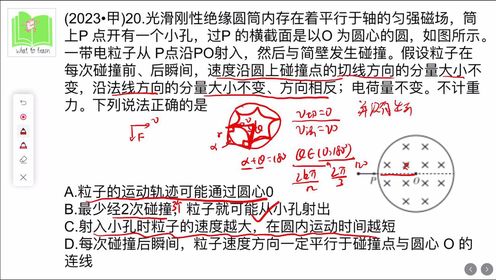 (2023•甲)20.光滑刚性绝缘圆筒内存在着平行于轴的匀强磁场，筒
上P点开有一个小孔，过P的横截面是以O为圆心的圆，如图所示。
一带电粒子从P点沿PO射入，然后与筒壁发生碰撞。假设粒子在
每次碰撞前、后瞬间，速度沿圆上碰撞点的切线方向的分量大小不
变，沿法线方向的分量大小不变、方向相反；电荷量不变。不计重
力。下列说法正确的是
what to learn
v
F
r
α
θ
α+θ=180
v切=0
θ∈(0,180°)
2π
n
2π
3
P
O
A.粒子的运动轨迹可能通过圆心O
B.最少经2次碰撞，粒子就可能从小孔射出
C.射入小孔时粒子的速度越大，在圆内运动时间越短
D.每次碰撞后瞬间，粒子速度方向一定平行于碰撞点与圆心O的
连线